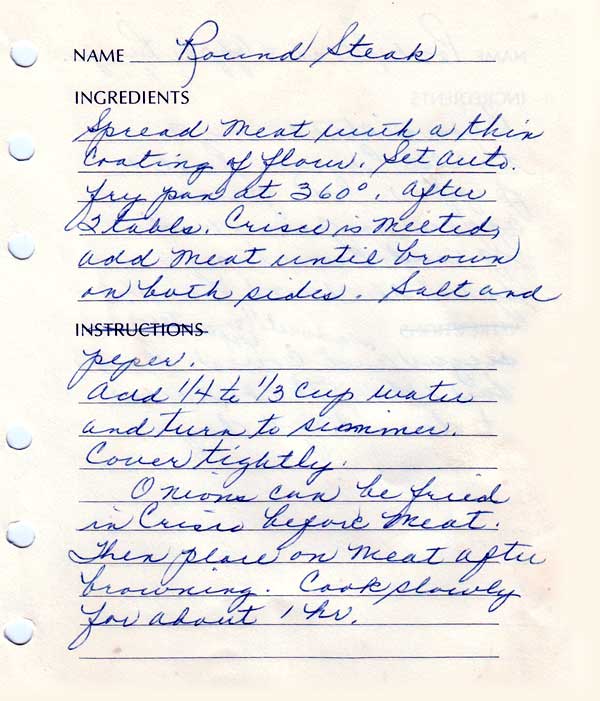 NAME Round Steak
INGREDIENTS
Spread meat with a thin
coating of flour. Set auto.
fry pan at 360°. After
2 tabls. Crisco is melted,
add meat until brown
on both sides. Salt and
INSTRUCTIONS
peper.
Add 1/4 to 1/3 cup water
and turn to simmer.
Cover tightly.
Onions can be fried
in Crisco before meat.
Then place on meat after
browning. Cook slowly
for about 1 hr.